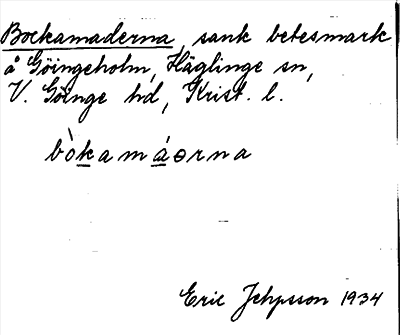 Bockamaderna, sank betesmark
å Göingeholm, Häglinge sn,
V. Göinge hd, Krist. l.
bòkamáərna
Eric Jepsson 1934